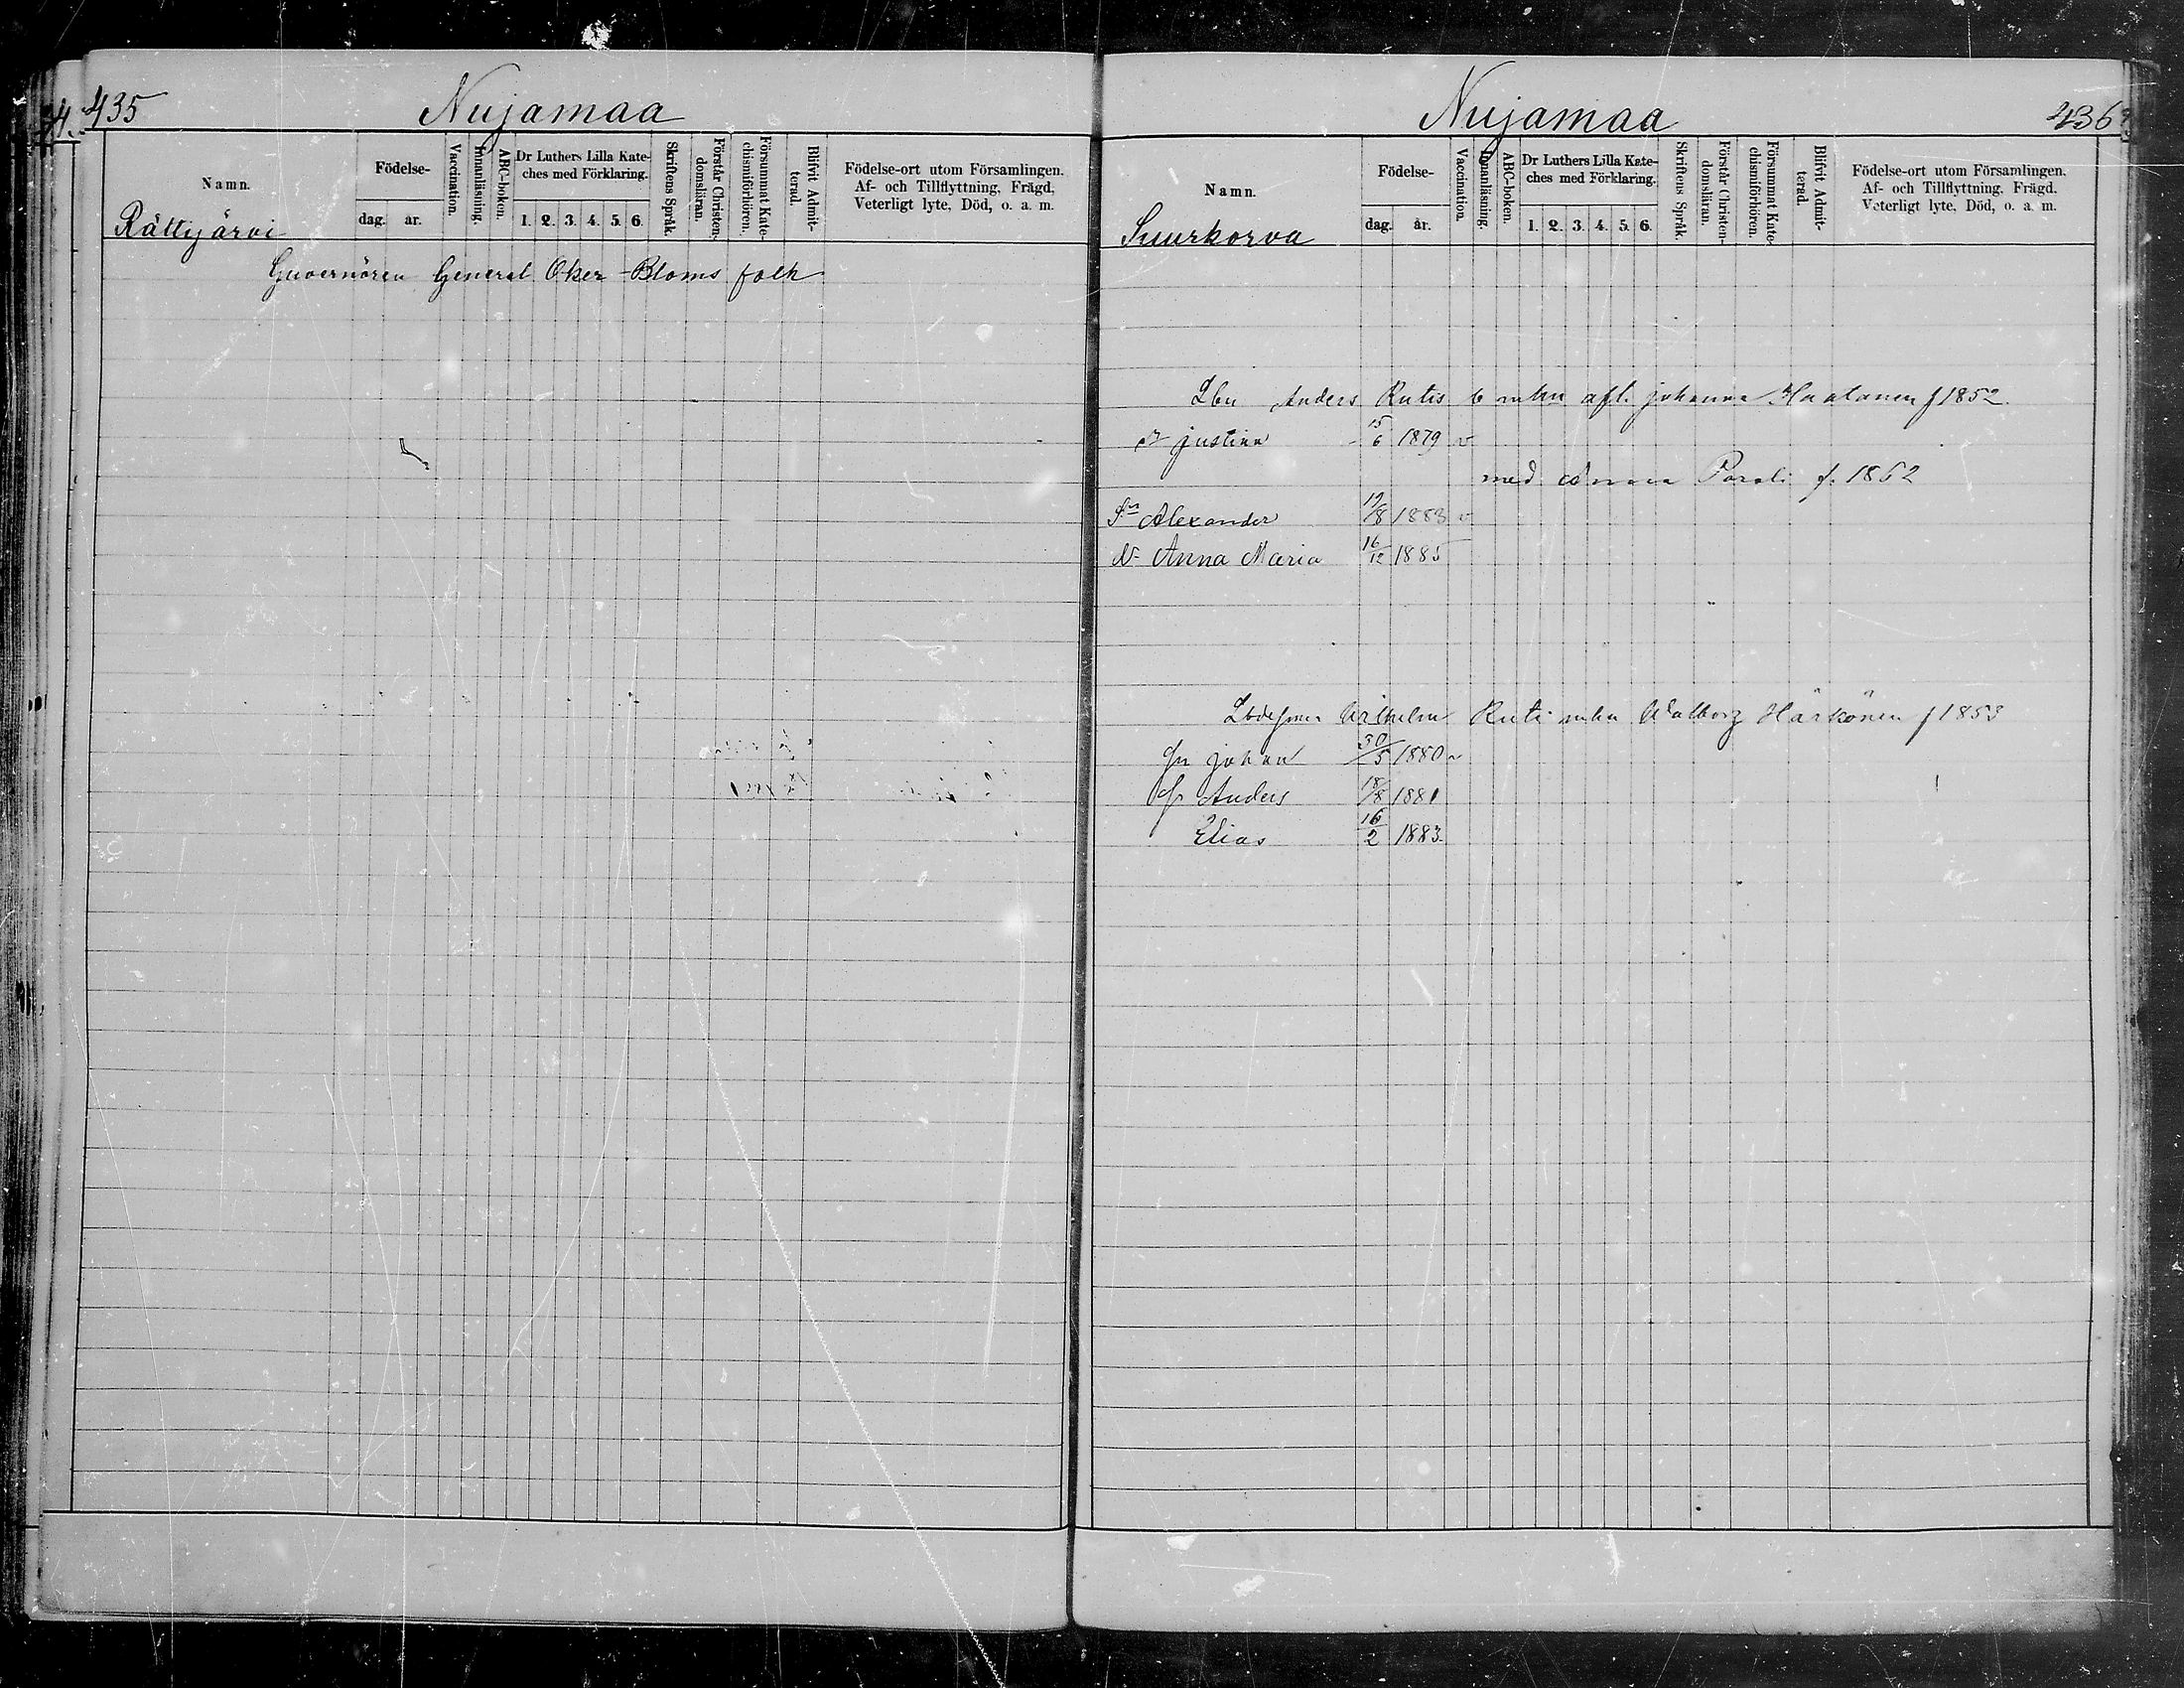 435
Nujamaa
Namn.
Födelse-
dag.
år.
Vaccination.
Innanläsning.
ABC-boken.
Dr Luthers Lilla Kate-
ches med Förklaring.
1. 2. 3. 4. 5. 6.
Skriftens Språk.
Förstår Christen-
domsläran.
Försummat Kate-
chismiförhören.
Blifvit Admit-
terad.
Födelse-ort utom Församlingen.
Af- och Tillflyttning, Frägd,
Veterligt lyte, Död, o. a. m.
Rättijärvi
Guvernören General Oker-Bloms folk
Nujamaa
436
Namn.
Födelse-
dag.
år.
Vaccination.
Innanläsning.
ABC-boken.
Dr Luthers Lilla Kate-
ches med Förklaring.
1. 2. 3. 4. 5. 6.
Skriftens Språk.
Förstår Christen-
domsläran.
Försummat Kate-
chismiförhören.
Blifvit Admit-
terad.
Födelse-ort utom Församlingen.
Af- och Tillflyttning, Frägd.
Veterligt lyte, Död, o. a. m.
Suurkorva
Anders Rutis afl. johanna f 1852.
justina 15/6 1879 v
med f. 1862
Sn Alexander 19/8 1883 v
Anna Maria 16/12 1885
Wilhelm Ruti mhu Walborg Härkönen f 1853
johan 30/5 1880 v
Anders 18/8 1881
Elias 16/2 1883